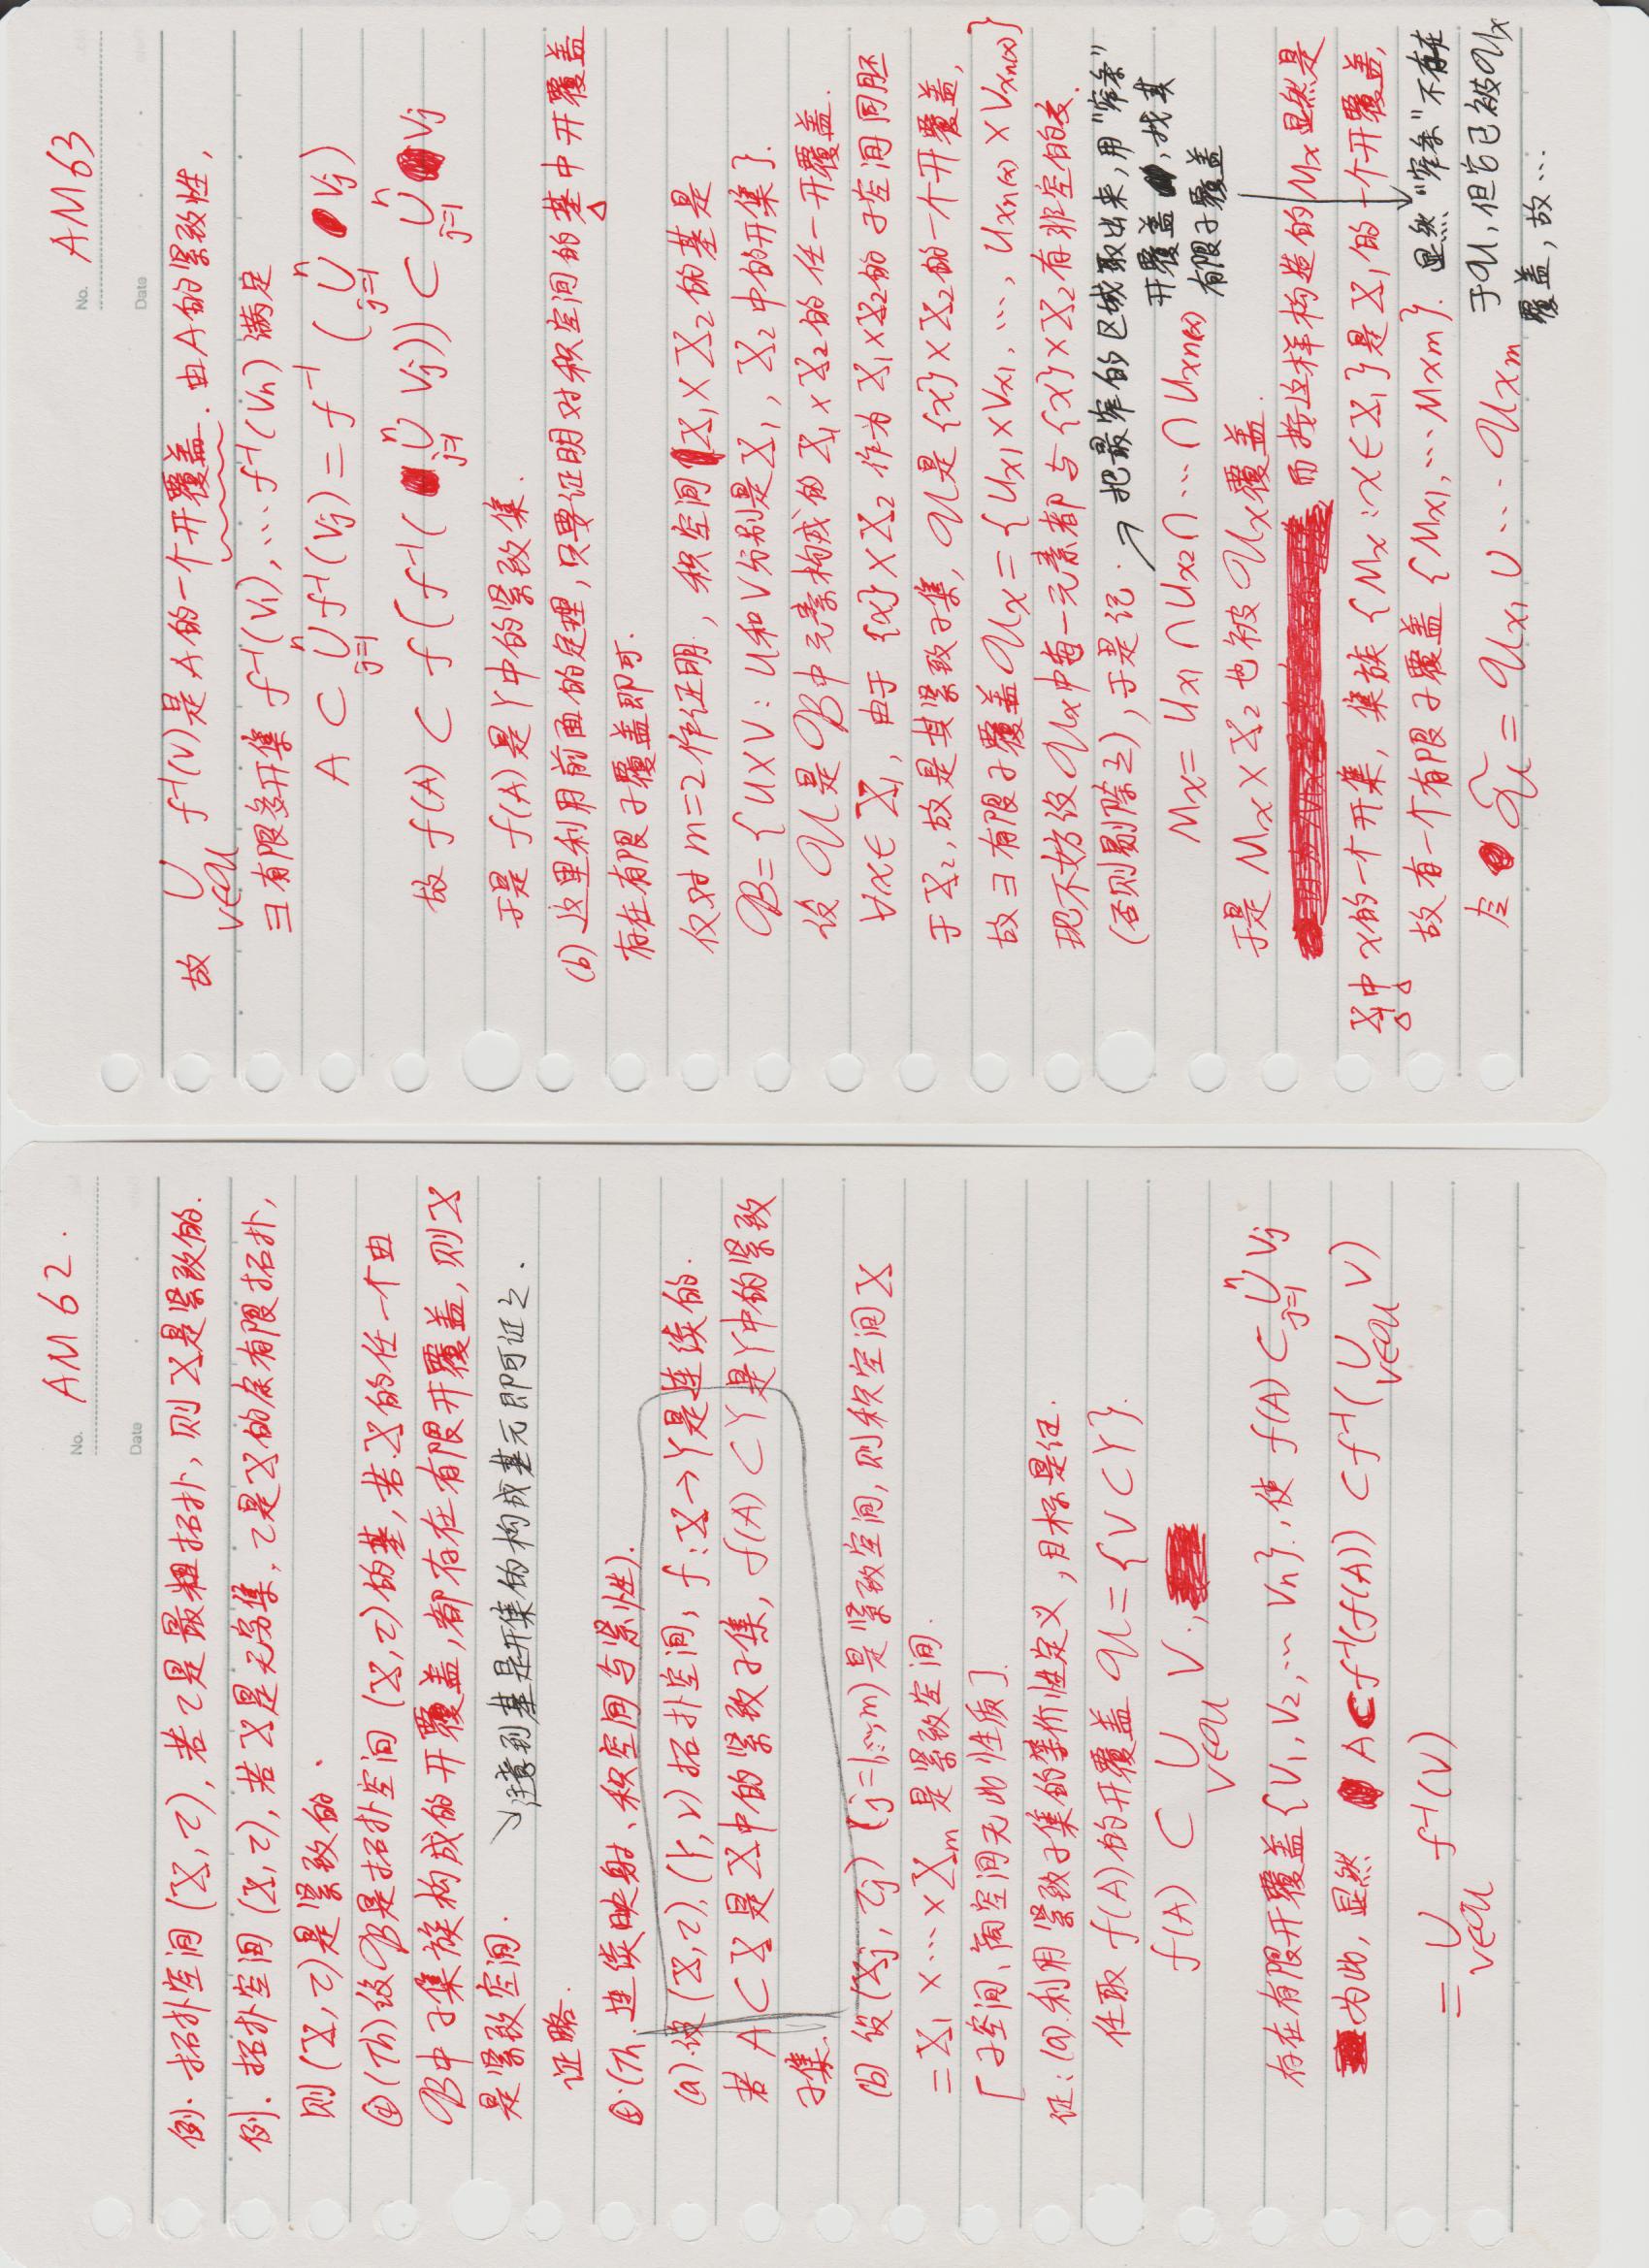 No. AM 62.
Date
例. 拓扑空间 (X,τ), 若τ是最粗拓扑, 则X是紧致的.
例. 拓扑空间 (X,τ), 若X是无穷集, τ是X的余有限拓扑,
则(X,τ)是紧致的.
④(Th) 设ℬ是拓扑空间 (X,τ)的基, 若X的任一个由
ℬ中子集族构成的开覆盖, 都存在有限开覆盖, 则X
是紧致空间.
↘注意到基是开集的构成基元即可证之.
证略.
④.(Th. 连续映射、积空间与紧性).
(a).设(X,τ), (Y,ν)拓扑空间, f:X→Y是连续的.
若 A⊂X是X中的紧致子集, f(A)⊂Y是Y中的紧致
子集.
(b) 设(Xj, τj) (j=1,…,m)是紧致空间, 则积空间X
=X₁×⋯×Xm 是紧致空间.
[子空间、商空间无此性质].
证: (a).利用紧致子集的等价性定义, 目标是证.
任取 f(A)的开覆盖 𝒰={V⊂Y}.
f(A) ⊂ ∪_{V∈𝒰} V.,
存在有限开覆盖{V₁,V₂,⋯Vn}., 使 f(A)⊂∪_{j=1}^{n} Vj
为此, 显然 A⊂f⁻¹(f(A)) ⊂f⁻¹(∪_{V∈𝒰} V)
= ∪_{V∈𝒰} f⁻¹(V)
No. AM63
Date
故 ∪_{V∈𝒰} f⁻¹(V)是A的一个开覆盖. 由A的紧致性,
∃有限多开集 f⁻¹(V₁),⋯f⁻¹(Vn)满足
A ⊂ ∪_{j=1}^{n} f⁻¹(Vj)=f⁻¹(∪_{j=1}^{n} Vj)
故 f(A) ⊂ f(f⁻¹(∪_{j=1}^{n} Vj)) ⊂ ∪_{j=1}^{n} Vj
于是 f(A)是Y中的紧致集.
(b) 这里利用前面的定理, 只要证明对积空间的基中开覆盖
存在有限子覆盖即可.
仅对m=2作证明, 积空间X₁×X₂的基是
ℬ={U×V: U和V分别是X₁, X₂中的开集}.
设 𝒰是ℬ中元素构成的X₁×X₂的任一开覆盖.
∀x∈X₁, 由于 {x}×X₂作为X₁×X₂的子空间同胚
于X₂, 故是其紧致子集, 𝒰是{x}×X₂的一个开覆盖,
故∃有限子覆盖𝒰x={Ux1×Vx1, ⋯, Uxn(x)×Vxn(x)}
现不妨设𝒰x中每一元素都与{x}×X₂有非空的交.
(否则剔除之), 于是记.
↗把最窄的区域取出来, 用"窄条"
开覆盖, 找其
有限子覆盖
Mx= Ux1∩Ux2∩⋯∩Uxn(x)
于是 Mx×X₂也被𝒰x覆盖.
而按这样构造的Mx显然是
X₁中x的一个开集, 集族{Mx:x∈X₁}是X₁的一个开覆盖,
故有一个有限子覆盖{Mx1,⋯Mxm}.
显然"窄条"不存在
于𝒰, 但它已被𝒰x
覆盖, 故⋯
令 𝒰̃ = 𝒰x₁∪⋯𝒰xm